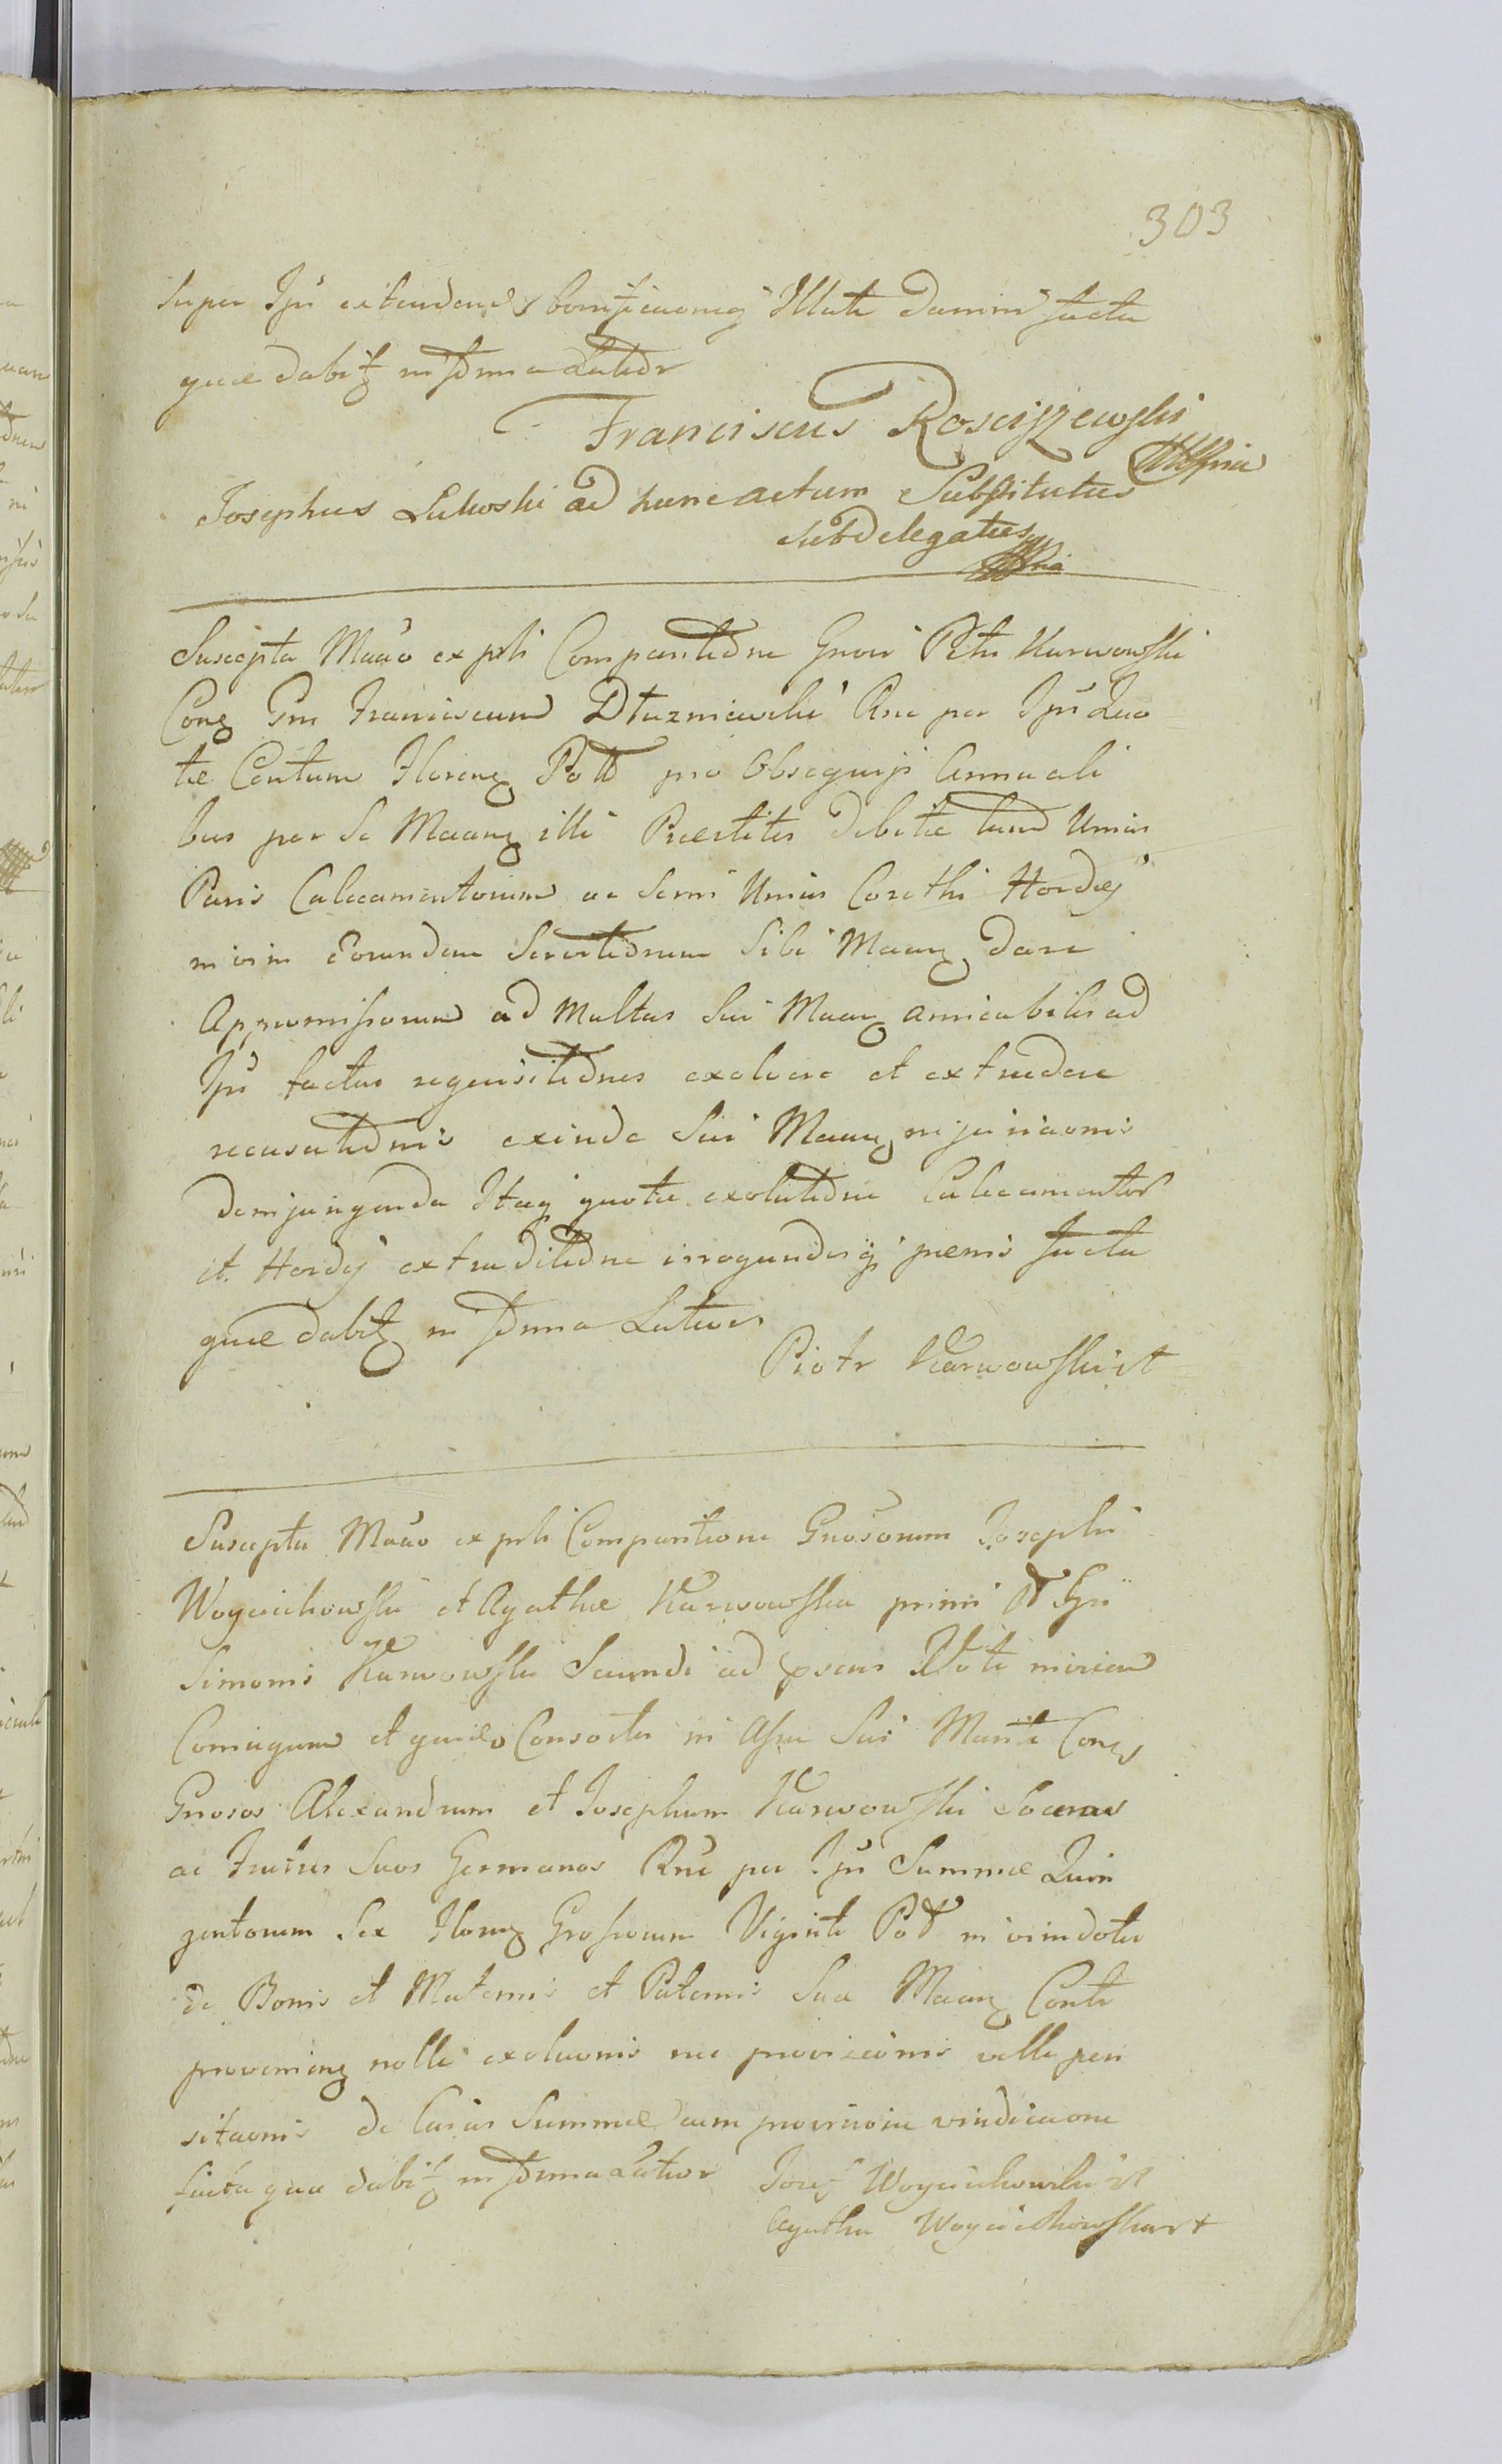 303
super Ipū extendend bonificaonq Illati Damni facta
quae dabitz in Fnma Latior
Franciscus Rosciszewski
mpria
Josephus Lukoski ad hunc actum Substitutus
subdelegatus
mpria
Suscepta Maāo ex psti Comparitione Gnosi Petri Karwowski
Conz Gm Franciscum Dłuzniewski Rne per Ipū Quo
tae Centum Florenz Poll pro Obsequijs Annuali
bus per Se Maanz illi Praestitis debitae tum Unius
Paris Calceamentorum ac Semi Unius Corethi Hordej
in vim Eorundem Servitiorum Sibi Maanz dare
Appromissorum ad Multas Sui Maanz amicabiles ad
Ipū factas requisitiones exolvere et extradere
recusationis exinde Sui Maanz injuriaonis
De injungenda Itaq quotae exolutione Calceamentor
et Hordej extraditione irrogandisq paenis facta
quae dabitz in Fnma Latius
Piotr Karwowski st
Suscepta Maāo ex psti Comparitione Gnosorum Josephi
Woyciechowski et Agathae Karwowska primi et Gsi
Simonis Karwowski Secundi ad psens Voti invicem
Coniugum et quidem Consortis in Assa Sui Mariti Conz
Gnosos Alexandrum et Josephum Karwowski Soceros
ac Fratres Suos Germanos Rnē per Ipū Summae Quin
gentorum Sex Florenz Grossorum Viginti Poll in vim dotis
de Bonis et Maternis et Paternis Sua Maanz Conti
provenienz nolle exoluonis nec proviziōnis velle pen
sitaonis De Cuius Summae cum provisione vindicaone
facta quae dabitz in Fnma Latior Jozef Woyciechowski st
Agatha Woyciechowska st